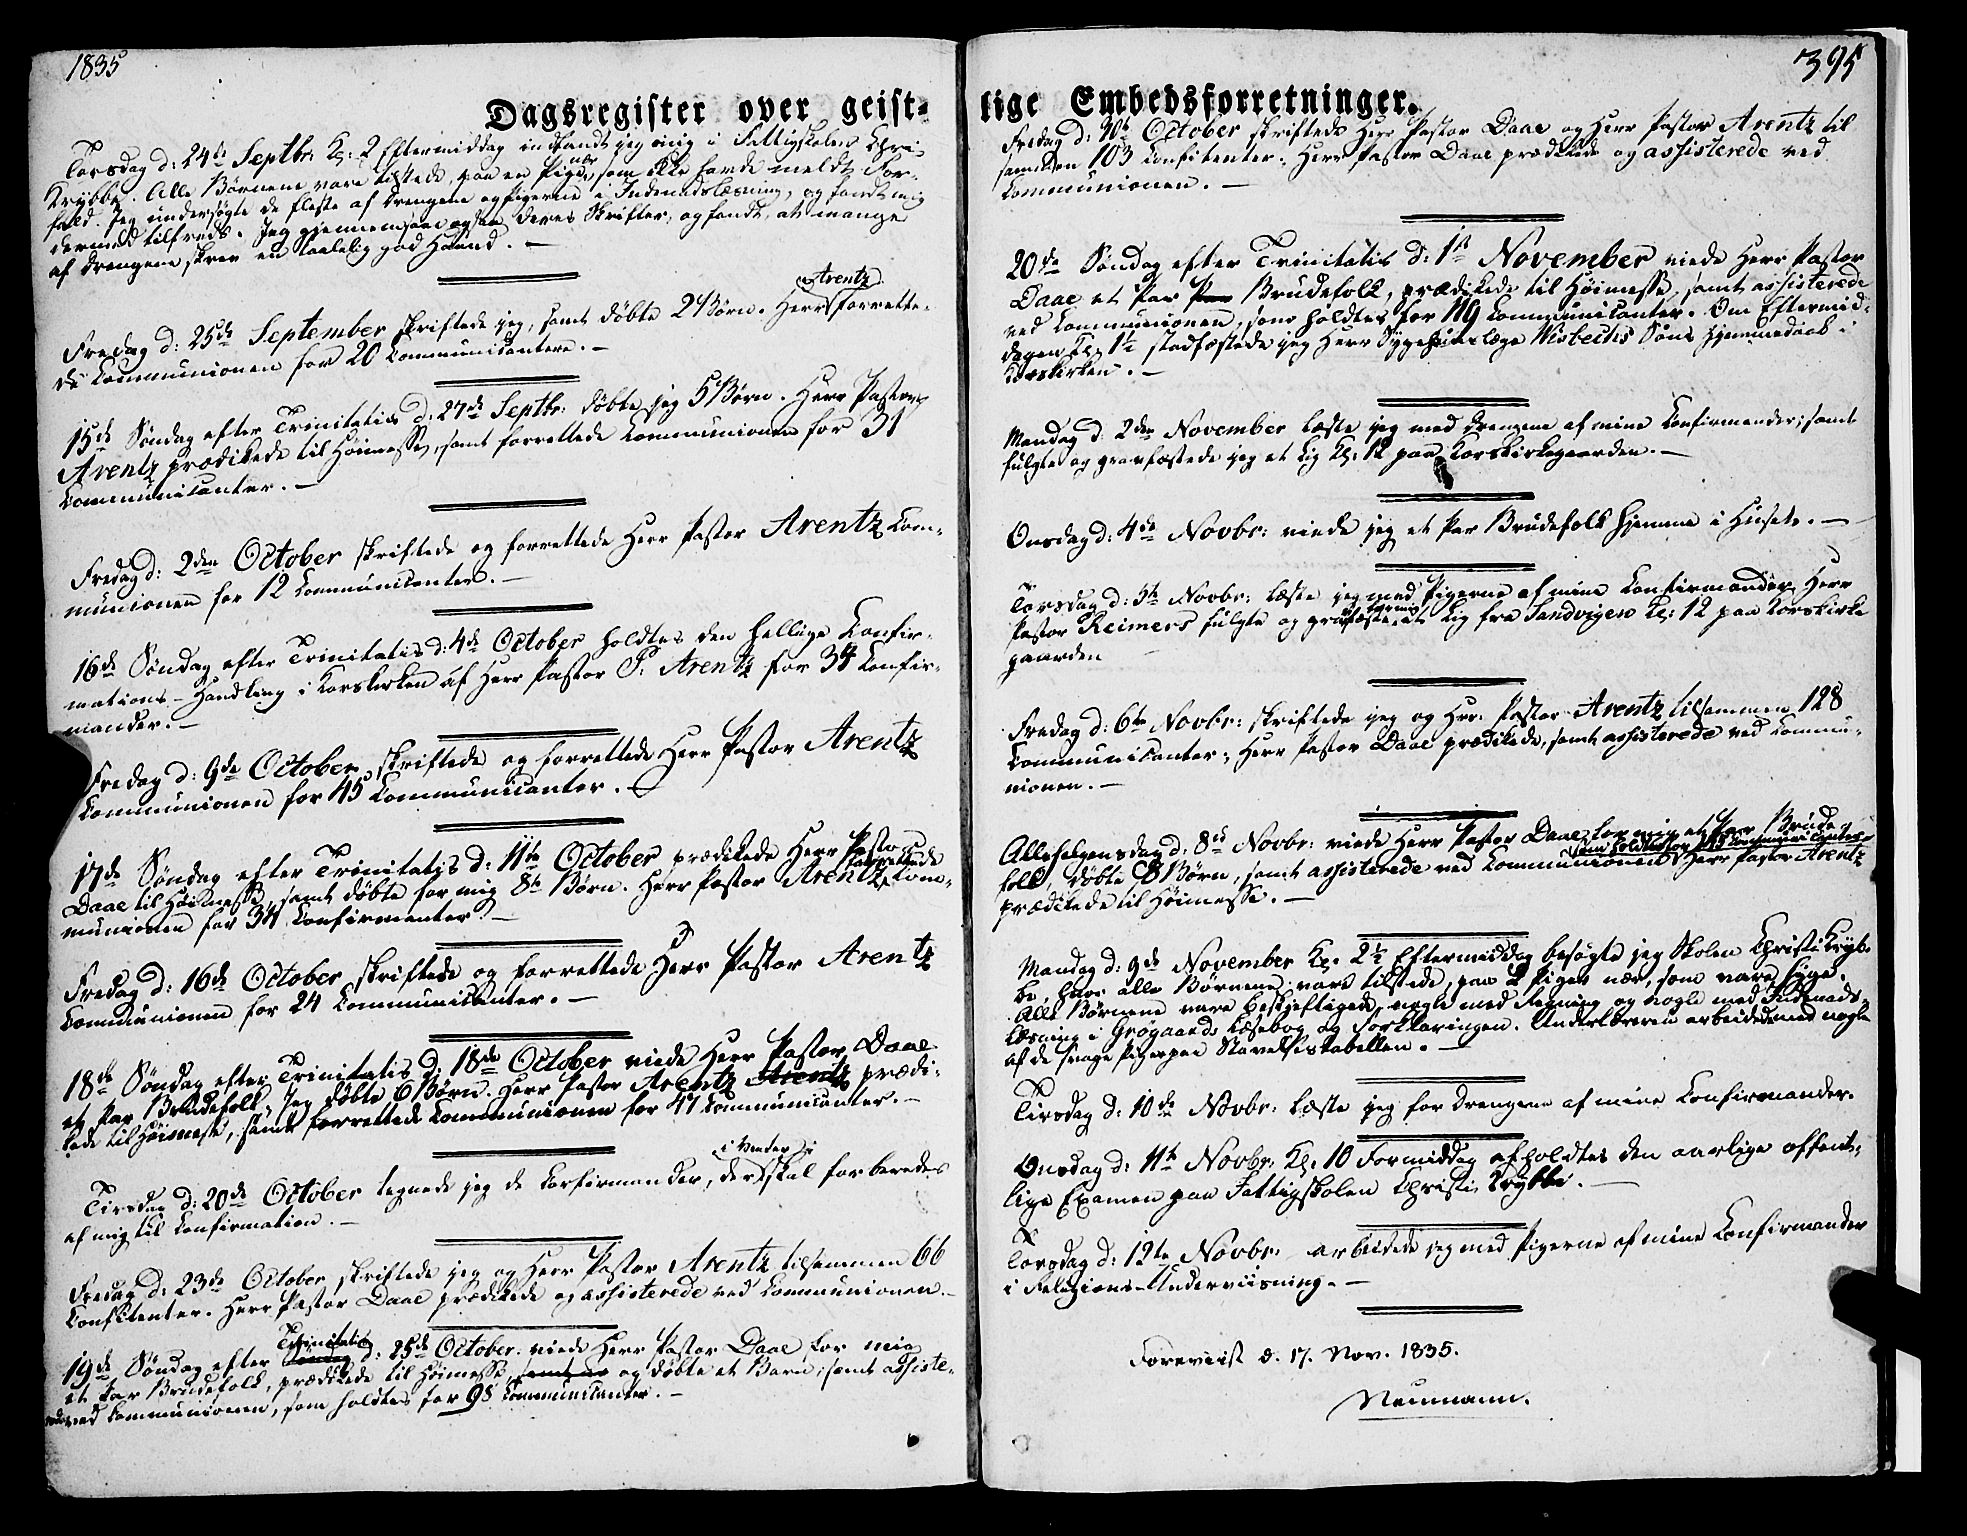 1835
Dagsregister over geist-
Torsdag d: 24de Septbr: Kl: 2 Eftermiddag indfandt jeg mig i Fattigskolen Christi
Krybbe. Alle Børnene vare tilstede, paa en Pige nær, som ikke havde meldt For-
fald. Jeg undersøgte de fleste af Drengene og Pigerne i Indenadslæsning, og fandt mig
dermed tilfreds. Jeg gjennemsaae ogsaa deres Skrifter, og fandt, at mange
af Drengene skrev en taalelig god Haand. —
Fredag d: 25de September skriftede jeg, samt døbte 2 Børn. Herr Arentz forrette-
de Communionen for 20 Communicantere. —
15de Søndag efter Trinitatis d: 27de Septbr: døbte jeg 5 Børn. Herr Pastor
Arentz prædikede til Høimesse, samt forrettede Communionen for 31
Communicanter. —
Fredag d: 2den October skriftede og forrettede Herr Pastor Arentz Com-
munionen for 12 Communicanter. —
16de Søndag efter Trinitatis d: 4de October holdtes den hellige Confir-
mations-Handling i Korskirken af Herr Pastor F. Arentz for 34 Confir-
mander. —
Fredag d: 9de October skriftede og forrettede Herr Pastor Arentz
Communionen for 45 Communicanter. —
17de Søndag efter Trinitatis d: 11te October prædikede Herr Pastor
Daae til Høimesse, samt døbte for mig 8te Børn. Herr Pastor Arentz forrettede Com-
munionen for 34 Confirmanter. —
Fredag d: 16de October skriftede og forrettede Herr Pastor Arentz
Communionen for 24 Communicanter. —
18de Søndag efter Trinitatis d: 18de October viede Herr Pastor Daae
et Par Brudefolk, Jeg døbte 6 Børn. Herr Pastor Arentz Arentz prædi-
kede til Høimesse, samt forrettede Communionen for 47 Communicanter. —
Tirsdag d: 20de October tegnede jeg de Confirmander, der i Vinter skal forberedes
af mig til Confirmation. —
Fredag d: 23de October skriftede jeg og Herr Pastor Arentz tilsammen 66
Confitenter. Herr Pastor Daae prædikede og assisterede ved Communionen. —
19de Søndag efter Trinitatis d: 25de October viede Herr Pastor Daae for mig
et Par Brudefolk, prædikede til Høimesse, og døbte et Barn; samt assiste-
rede ved Communionen, som holdtes for 98 Communicanter. —
395
lige Embedsforretninger.
Fredag d: 30te October skriftede Herr Pastor Daae og Herr Pastor Arentz til
sammen 103 Confitenter. Herr Pastor Daae prædikede og assisterede ved
Communionen. —
20de Søndag efter Trinitatis d: 1ste November viede Herr Pastor
Daae et Par Par Brudefolk, prædikede til Høimesse, samt assisterede
ved Communionen, som holdtes for 119 Communicanter. Om Eftermid-
dagen Kl. 1½ stadfæstede jeg Herr Wisbechs Søns Hjemmedaab i
Korskirken. —
Mandag d: 2den November læste jeg med Drengene af mine Confirmander; samt
fulgte og gravfæstede jeg et Lig Kl: 12 paa Korskirkegaarden. —
Onsdag d: 4de Novbr: viede jeg et Par Brudefolk hjemme i Huset. —
Torsdag d: 5te Novbr: læste jeg med Pigerne af mine Confirmander, Herr
Pastor Reimers fulgte og gravfæstede et Lig fra Sandvigen Kl: 12 paa Korskirke
gaarden
Fredag d: 6te Novbr: skriftede jeg og Hrr: Pastor Arentz tilsammen 128
Communicanter; Herr Pastor Daae prædikede, samt assisterede ved Commu-
nionen. —
Allehelgensdag d: 8de Novbr: viede Herr Pastor Daae for mig et Par Brude-
folk, døbte 8 Børn, samt assisterede ved Communionen, Herr Pastor Arentz
prædikede til Høimesse. —
Mandag d: 9de November Kl. 2½ Eftermiddag besøgte jeg Skolen Christi Kryb-
be, hvor alle Børnene vare tilstede, paa 2 Piger nær, som vare syge.
Alle Børnene vare beskjeftigede, nogle med Regning og nogle med Indenads-
læsning i Grøgaards Læsebog og Forklaringen. Underlæreren arbeidede med nogle
af de svage Piger paa Stavelsetabellen. —
Tirsdag d: 10de Novbr: læste jeg for Drengene af mine Confirmander.
Onsdag d: 11te Novbr: Kl: 10 Formiddag afholdtes den aarlige offent-
lige Examen paa Fattigskolen Christi Krybbe. —
Torsdag d: 12te Novbr: arbeidede jeg med Pigerne af mine Confirmander
i Religions-Underviisning. —
Foreviist d. 17. Nov. 1835.
Neumann.